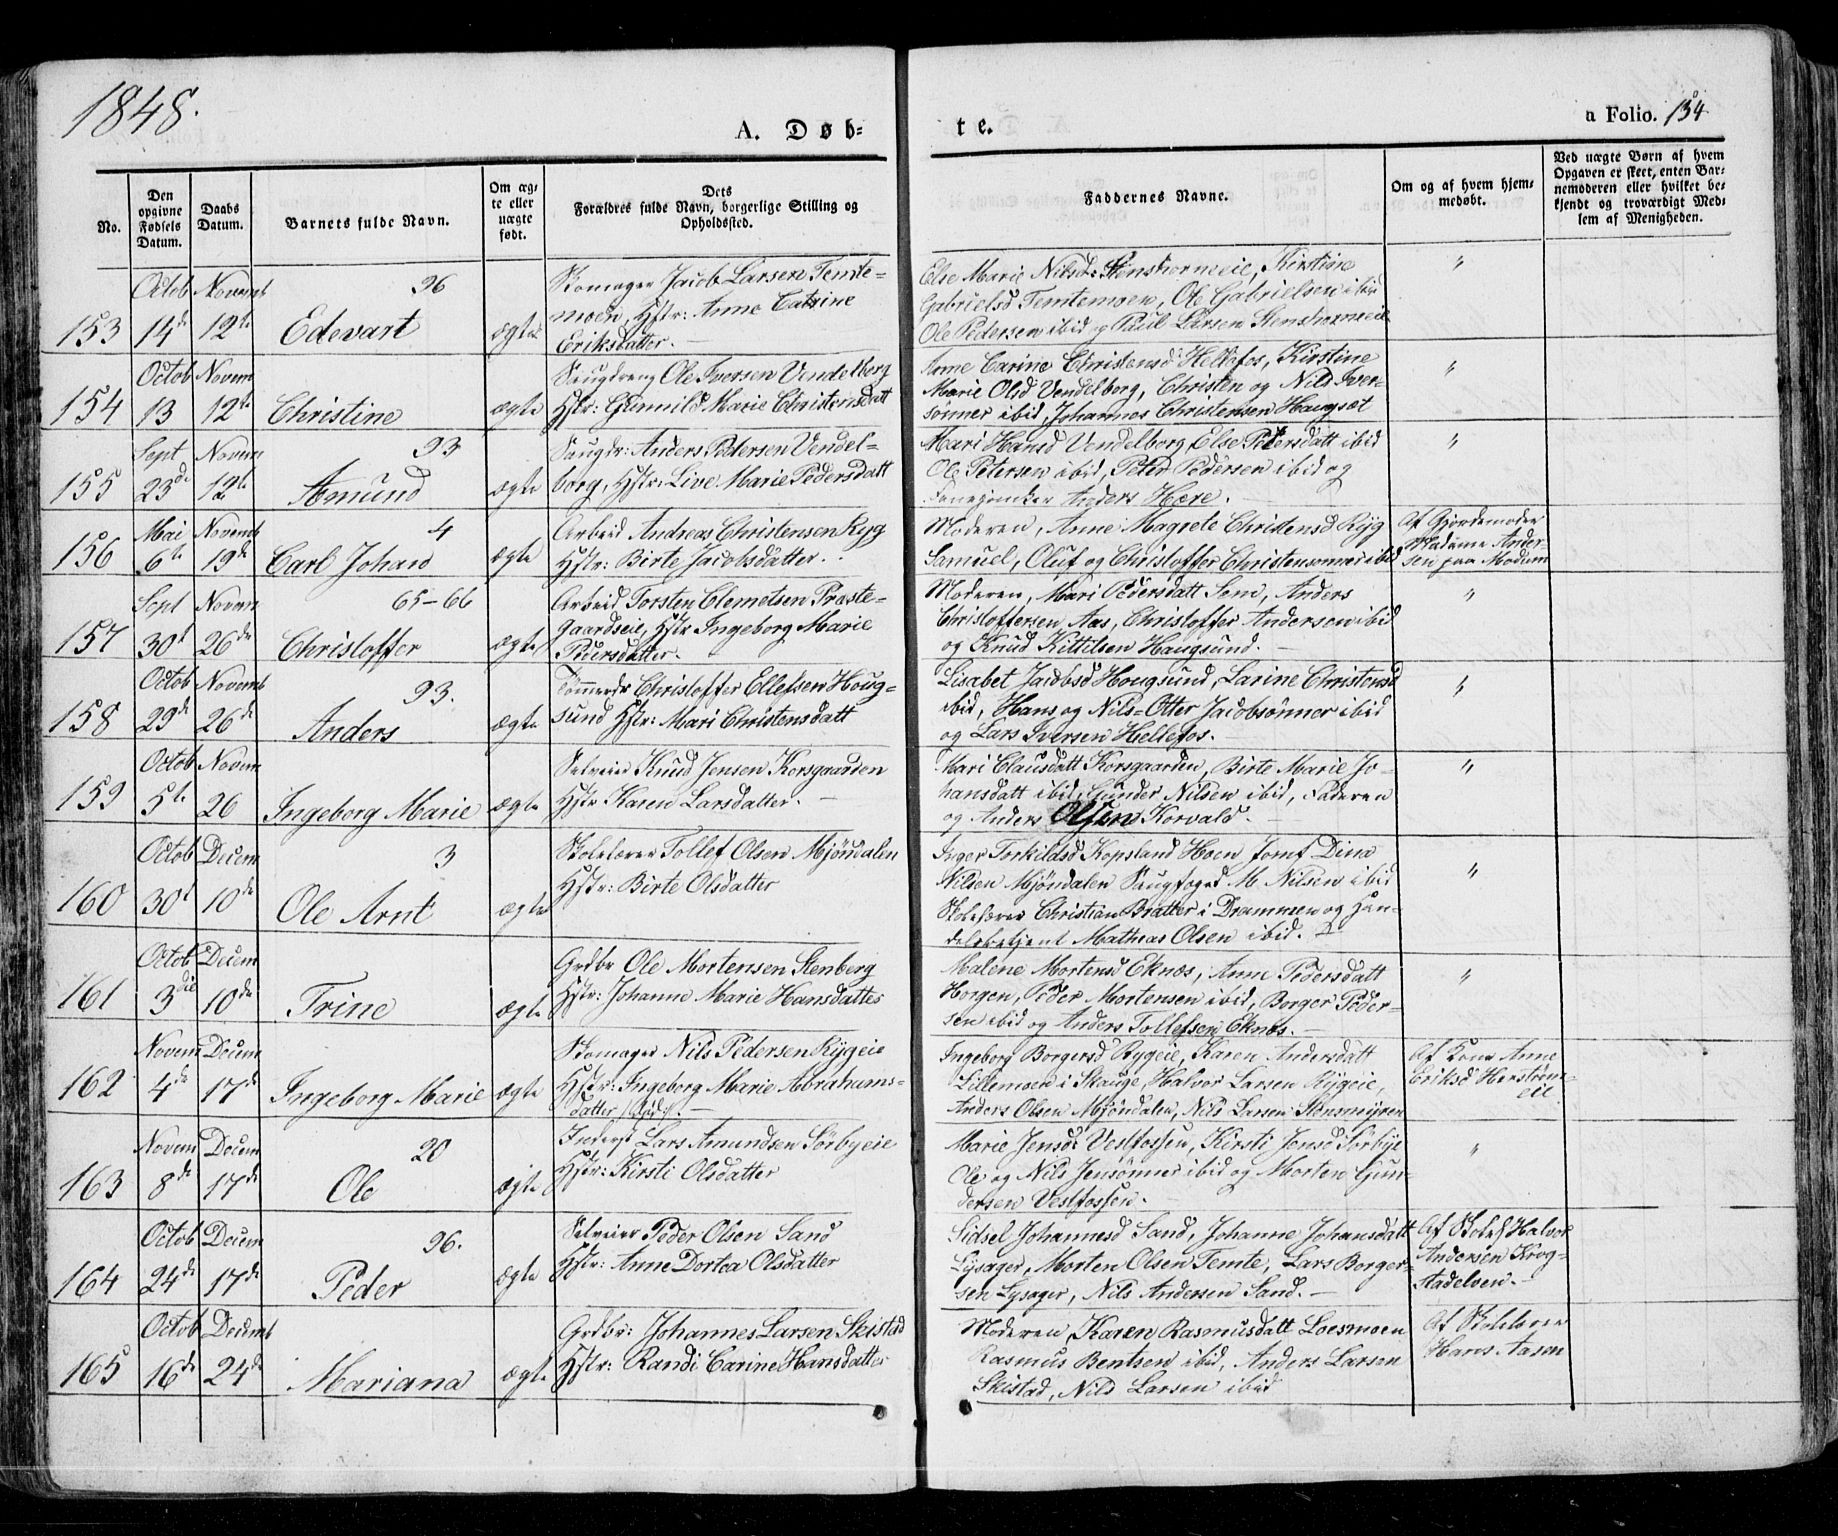 1848.
A. Døb-
te.
a Folio. 134
No.
Den opgivne Fødsels Datum.
Daabs Datum.
Barnets fulde Navn.
Om æg-
te eller
uægte
født.
Dets
Forældres fulde Navn, borgerlige Stilling og
Opholdssted.
Faddernes Navne.
Om og af hvem hjem-
medøbt.
Ved uægte Børn af hvem
Opgaven er skeet, enten Bar-
nemoderen eller hvilket be-
kjendt og troværdigt Med-
lem af Menigheden.
153 Octob 14de Novemb 12te 96 Edevart ægte
Skomager Jacob Larsen Temte-
moen, Hstr: Anne Catrine
Eriksdatter.
Else Marie Nilsd: Stenshorneie, Kirstine
Gabrielsd Temtemoen, Ole Gabrielsen ibid
Ole Pedersen ibid og Paul Larsen Stenshorneie
"
154 Octob 13 Novem 12te Christine ægte
Saugdreng Ole Iversen Vendelborg
Hstr: Gunnild Marie Christensdatt
Anne Carine Christensd Hellefos, Kirstine
Marie Olsd Vendelborg, Christen og Nils Iver-
sønner ibid, Johannes Christensen Haugsæt
"
155 Sept 23de Novem 12te 93 Amund ægte
Saugdr: Anders Pedersen Vendel-
borg, Hstr: Live Marie Pedersdatt
Mari Hansd Vendelborg, Else Petersdatt ibid
Ole Petersen ibid, Peter Pedersen ibid og
Fanejunker Anders Hære.
"
156 Mai 6te Novemb 19de 4 Carl Johan ægte
Arbeid Andreas Christensen Ryg
Hstr: Birte Jacobsdatter.
Moderen, Anne Magrete Christensd Ryg
Samuel, Oluf og Christoffer Christensønner ibid
Af Gjordemoder
Madame Ander-
sen paa Modum
157 Sept 30te Novem 26de 65-66 Christoffer ægte
Arbeid Torsten Clemetsen Præste-
gaardseie, Hstr Ingeborg Marie
Pedersdatter.
Moderen, Mari Pedersdatt Sem, Anders
Christoffersen Aas, Christoffer Andersen ibid
og Knud Kittilsen Haugsund.
"
158 Octob 29de Novemb 26de 93. Anders ægte
Tømmerdr Christoffer Ellefsen Houg-
sund Hstr: Mari Christensdatt
Lisabet Jacobsd Hougsund, Larine Christensd
ibid, Hans og Nils-Otter Jacobsønner ibid
og Lars Iversen Hellefos.
"
159 Octob 5te Novem 26 Ingeborg Marie ægte
Selveier Knud Jensen Korsgaarden
Hstr Karen Larsdatter.
Mari Clausdatt Korsgaarden, Birte Marie Jo-
hansdatt ibid, Gunder Nilsen ibid, Faderen
og Anders Olsen Korvald.
"
160 Octob 30te Decem 10de 3 Ole Arnt ægte
Skolelærer Tollef Olsen Mjöndalen
Hstr: Birte Olsdatter
Inger Torkildsd Kopsland Hoen Jomf Dina
Nilsen Mjöndalen Saugfoged M. Nilsen ibid
Skolelærer Christian Bratter i Drammen og Han-
delsbetjent Mathias Olsen ibid.
"
161 Octob 3die Decem 10de Trine ægte
Grdbr Ole Mortensen Stenberg
Hstr: Johanne Marie Hansdatter
Malene Mortensd Eknæs, Anne Pedersdatt
Horgen, Peder Mortensen ibid, Borger Peder-
sen ibid og Anders Tollefsen Eknæs.
"
162 Novem 4de Decem 17de Ingeborg Marie ægte
Skomager Nils Pedersen Rygeie
Hstr: Ingeborg Marie Abrahams-
datter (død).
Ingeborg Borgersd Rygeie, Karen Andersdatt
Lillemoen i Skauge, Halvor Larsen Rygeie,
Anders Olsen Mjöndalen, Nils Larsen Stensmyren
Af Kone Anne
Eriksd Henstrøm-
eie
163 Novem 8de Decem 17de 20 Ole ægte
Inderst Lars Amundsen Sörbyeie
Hstr: Kirsti Olsdatter
Marie Jensd: Vestfossen, Kirsti Jensd Sörbye
Ole og Nils Jensønner ibid og Morten Gun-
dersen Vestfossen.
"
164 Octob 24de Decem 17de 96. Peder ægte
Selveier Peder Olsen Sand
Hstr: Anne Dortea Olsdatter
Sidsel Johannesd Sand, Johanne Johansdatt
Lysager, Morten Olsen Temte, Lars Borger-
sen Lysager, Nils Andersen Sand.
Af Skolel Halvor
Andersen Krog-
stadelven.
165 Octob 16de Decemb 24de Mariana ægte
Grdbr: Johannes Larsen Skistad
Hstr: Randi Carine Hansdatter
Moderen, Karen Rasmusdatt Loesmoen
Rasmus Bentsen ibid, Anders Larsen
Skistad, Nils Larsen ibid
Af Skolelærer
Hans Aasen